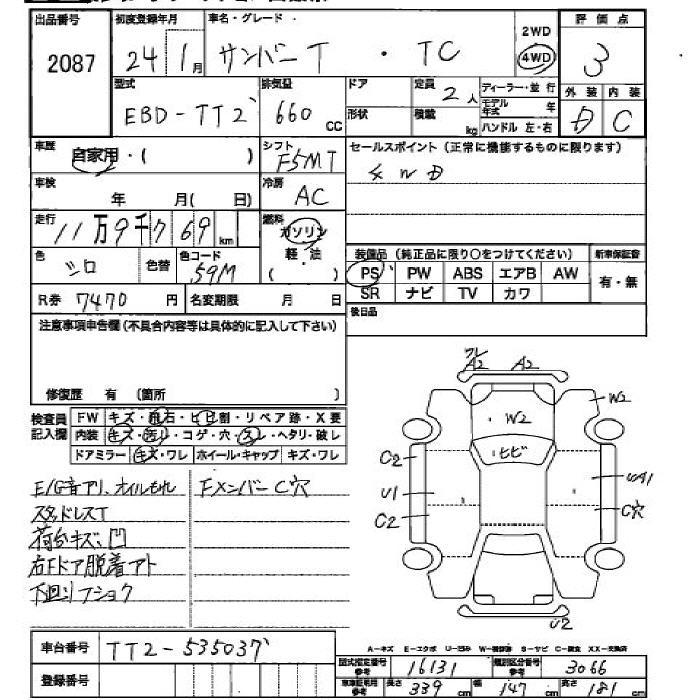 出品番号 初度登録年月 車名・グレード 2WD 評価点
2087 24年1月 サンバーT ・ TC 4WD 3
型式 排気量 ドア 定員 2人 ディーラー・並行 外装 内装
EBD-TT2 660cc 形状 積載 kg モデル年式 年 D C
ハンドル 左・右
車歴 自家用・( ) シフト F5MT セールスポイント(正常に機能するものに限ります)
車検 年 月( 日) 冷房 AC 4WD
走行 11万9千769km 燃料 ガソリン
軽・油
( )
色 シロ 色替 色コード 59M
装備品(純正品に限り○をつけてください) 新車保証書
PS PW ABS エアB AW 有・無
SR ナビ TV カワ
R券 7470円 名変期限 月 日
後日品
注意事項申告欄(不具合内容等は具体的に記入して下さい)
修復歴 有 (箇所 )
検査員記入欄 FW キズ・飛石・ヒビ割・リペア跡・X要
内装 キズ・汚れ・コゲ・穴・スレ・ヘタリ・破レ
ドアミラー キズ・ワレ ホイール・キャップ キズ・ワレ
E/G音アリ、オイルもれ Fメンバー C穴
スタッドレスT
荷台キズ、凹
右Fドア脱着アト
下廻りフショク
ワレ A2 A2
W2
W2
ヒビ
C2
U1 UA1
C2 C穴
U2
車台番号 TT2-535037
登録番号
A-キズ E-エクボ U-凹み W-補修跡 S-サビ C-腐食 XX-交換済
型式指定番号参考 16131 類別区分番号参考 3066
車庫証明用参考 長さ 339cm 幅 147cm 高さ 181cm